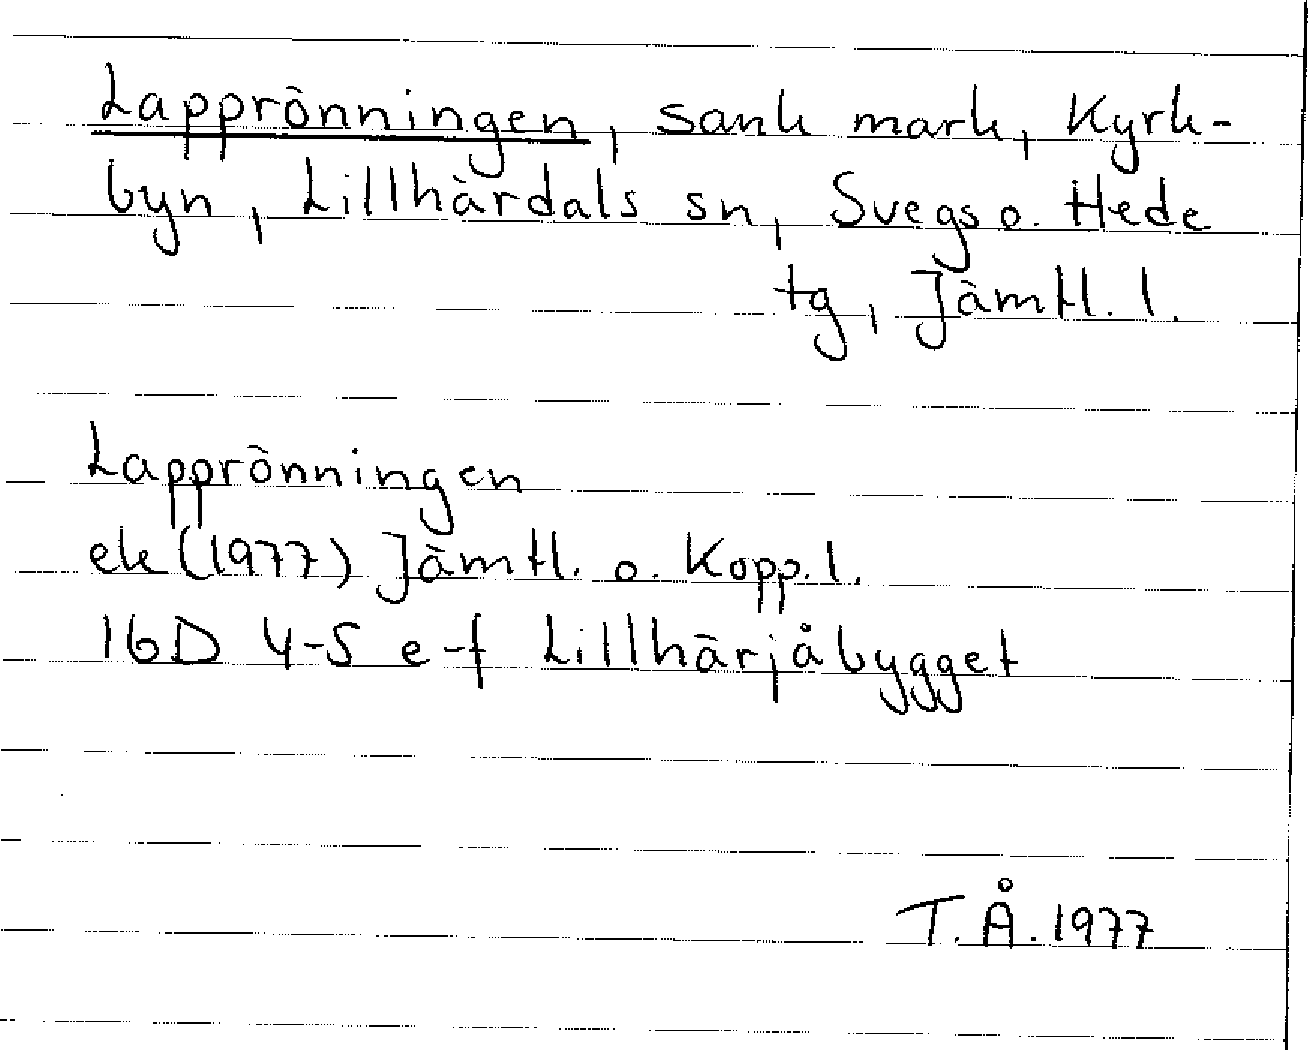 Lapprönningen, sank mark, Kyrk-
byn, Lillhärdals sn, Svegs o. Hede
tg, Jämtl. l.
Lapprönningen
ek (1977) Jämtl. o. Kopp. l.
16D 4-5 e-f Lillhärjåbygget
T.Å. 1977